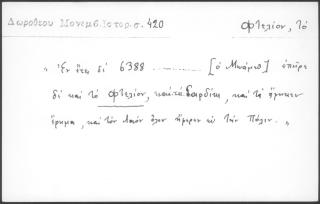 Δωροθέου Μονεμβ. Ἱστορ. σ. 420
Φτελίον, τό
„ Ἐν ἔτει δὲ 6388 ............ [ὁ Μπάμπο] ἐπῆρε
δὲ καὶ τὸ Φτελίον, καὶ τὰ Σαρδίκα, καὶ τὰ ἔκαμεν
ἔρημα, καὶ τὸν λαὸν ὅλον ἤφερεν εἰς τὴν Πόλιν. „